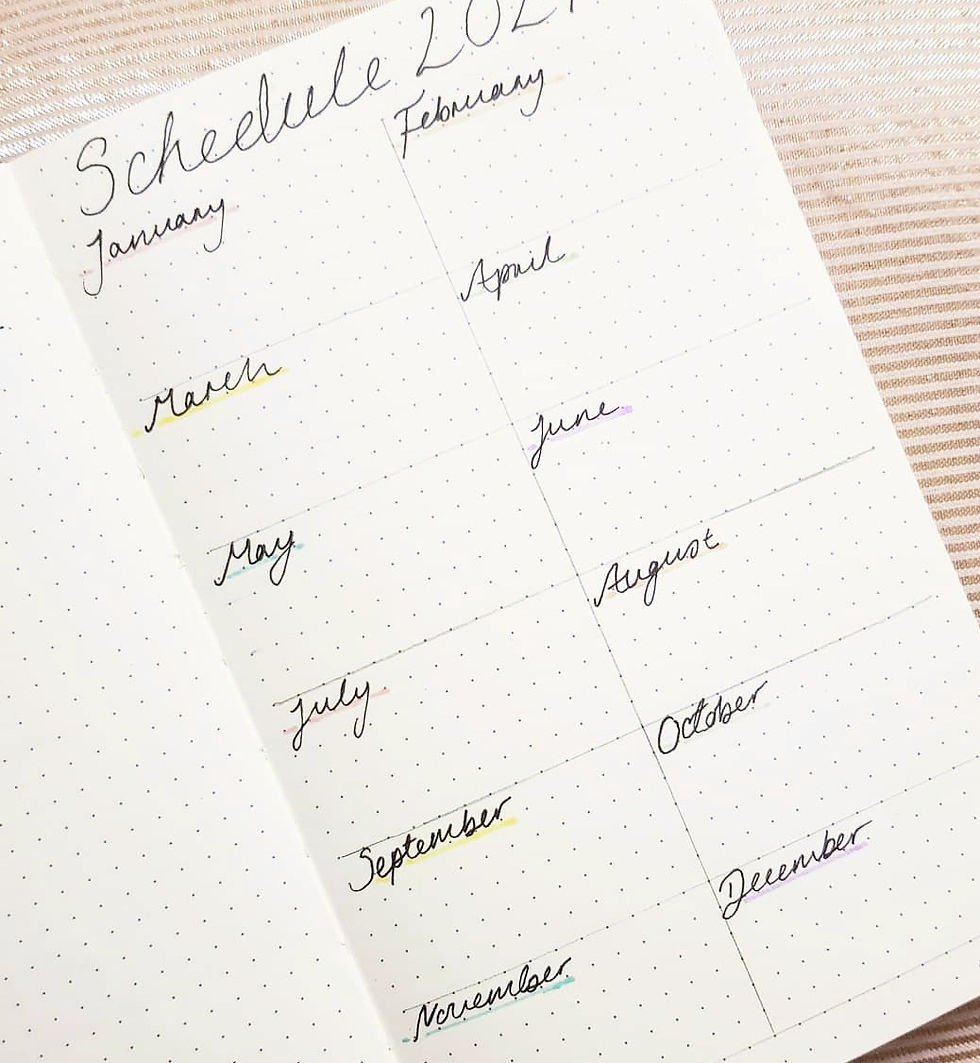 Schedule
January
February
March
April
May
June
July
August
September
October
November
December